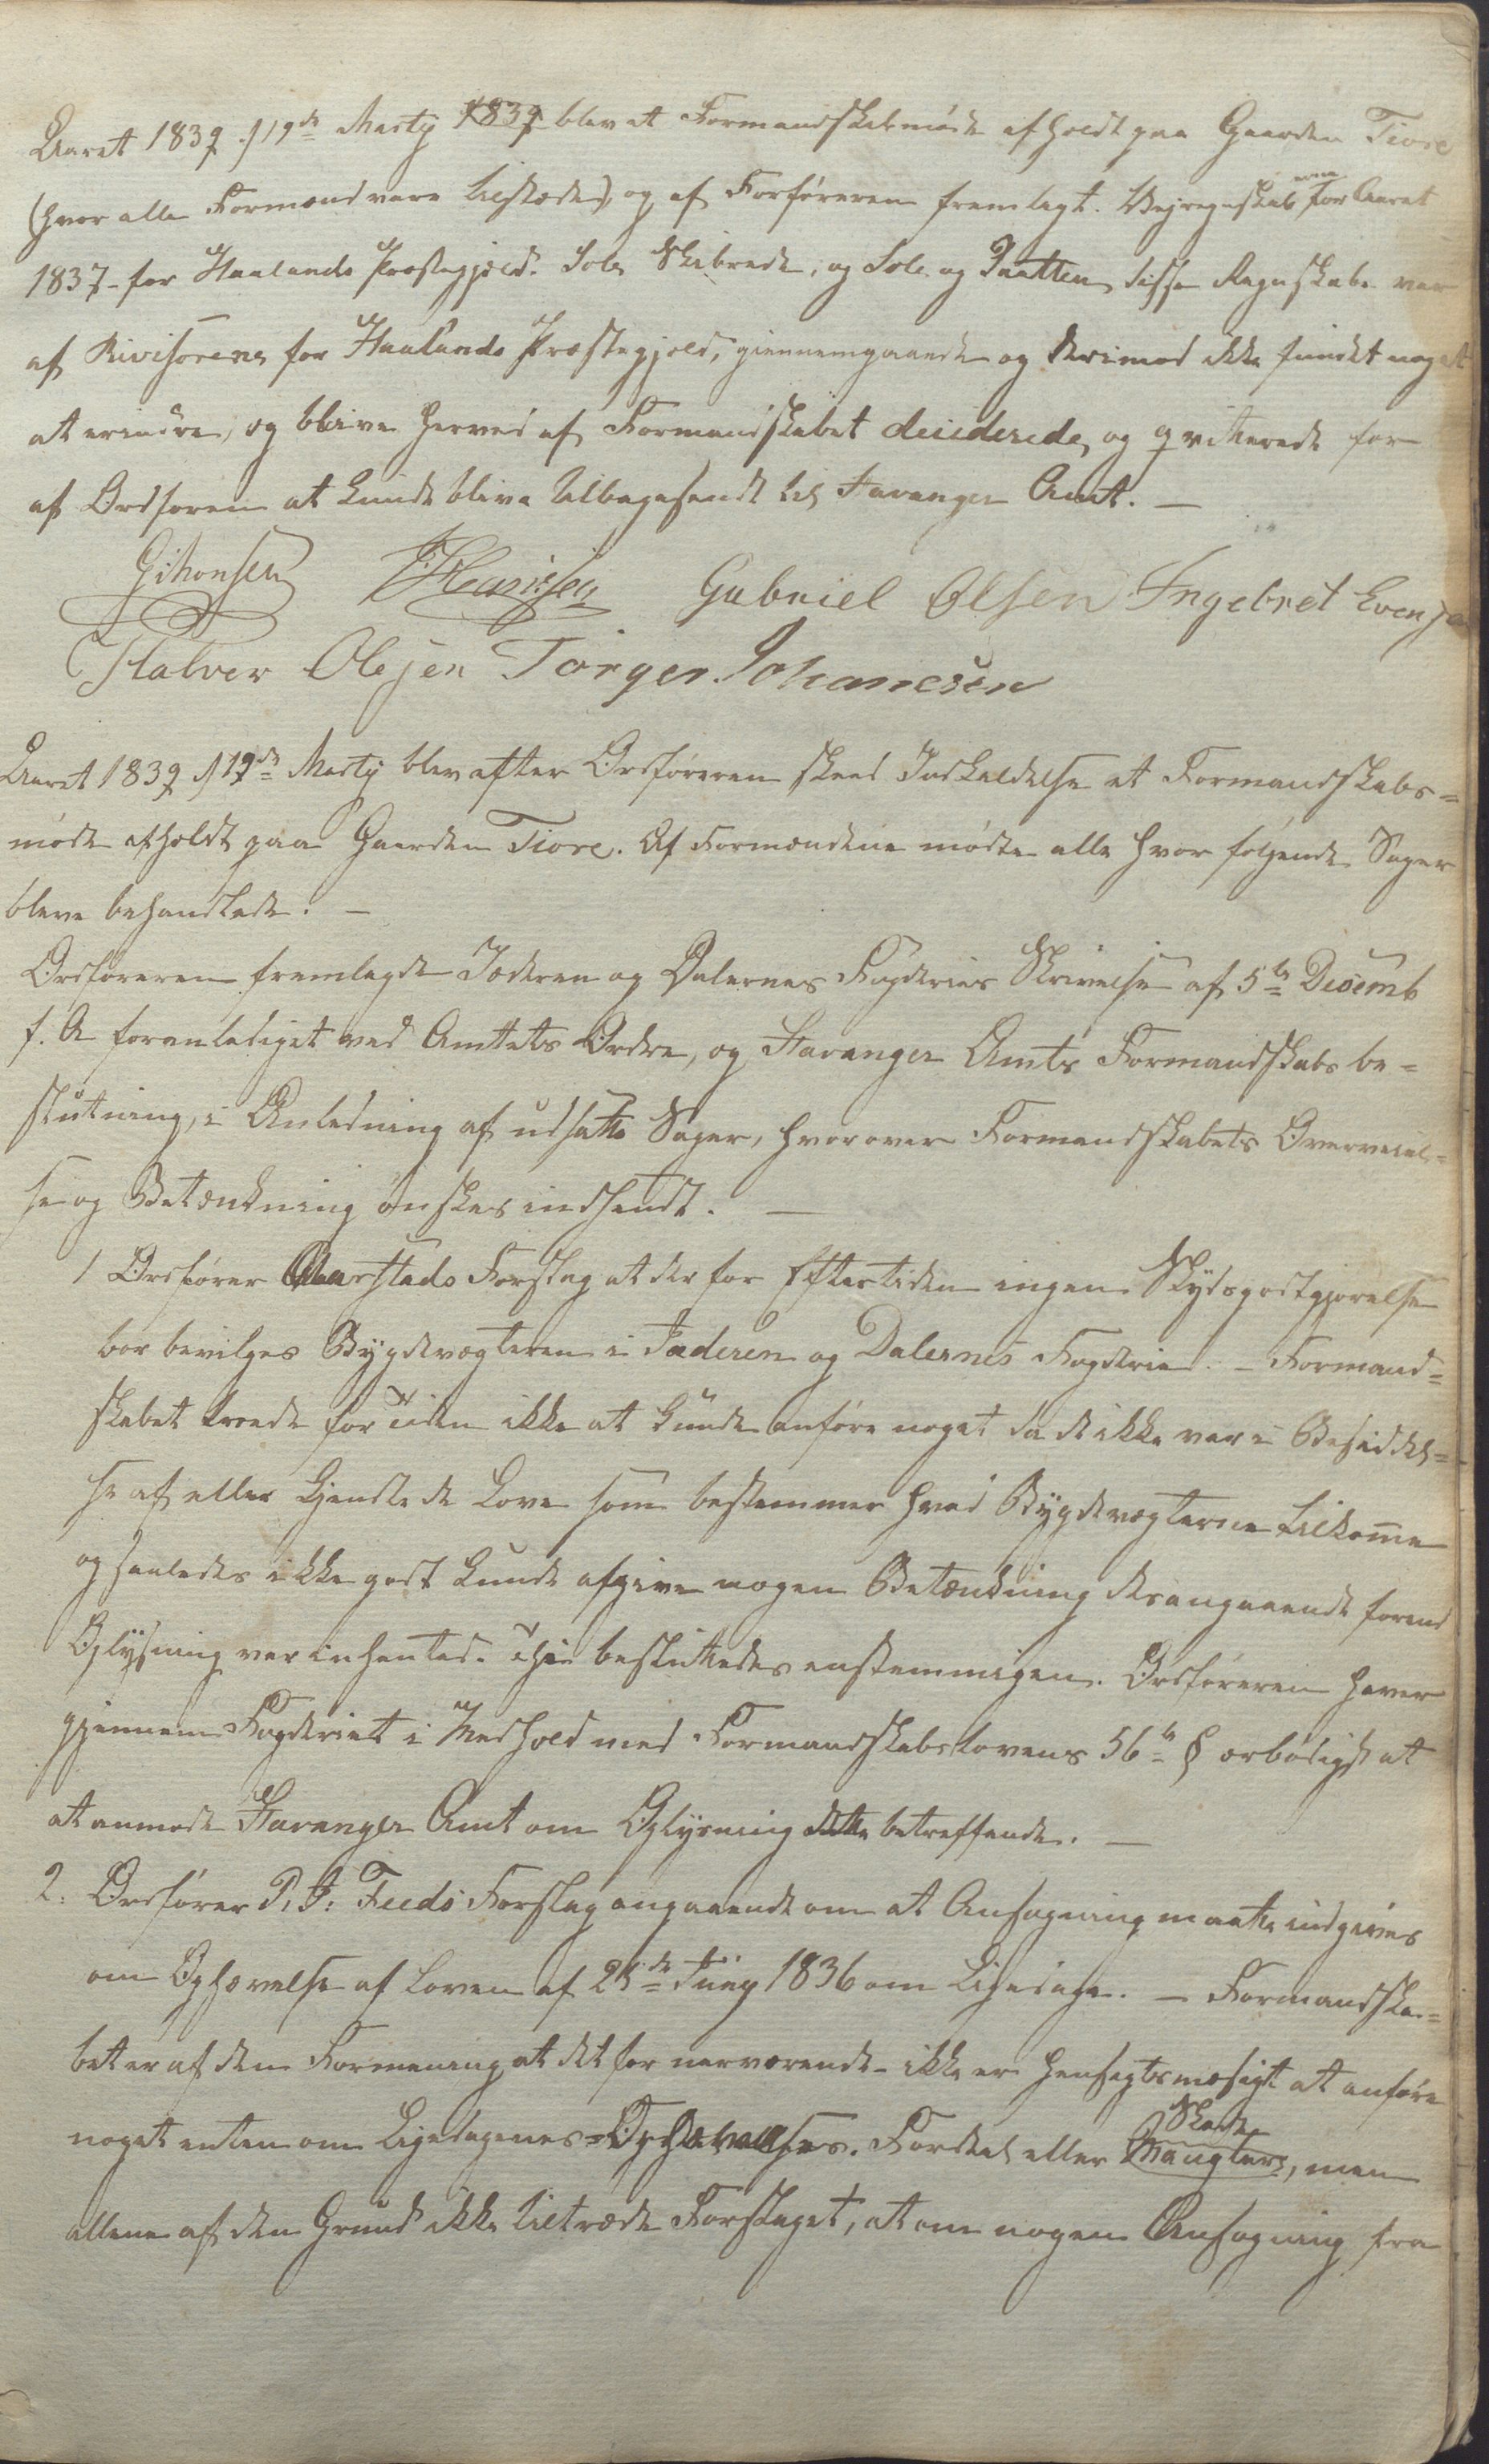 Aaret 1839 d 19de Martÿ 1839 blev et Formandskabsmøde afholdt paa Gaarden Tiore
(hvor alle Formænd vare tilstæde) og af Forføreren fremlagt. Vejregnskaberne for Aaret
1837 for Haalands Præstegjeld. Sole Skibrede, og Sole og Tjatten, disse Regnskabe var
af Rivisorene for Haalands Præstegjeld, giennemgaaede og derimod ikke fundet noget
at erindre, og blive herved af Formandskabet deciderede, og qvitterede for
af Ordføren at kunde blive tilbagesendt til Stavanger Amt. —
G Monsen J Henrichsen Gabriel Olsen Ingebret Evensen
Halver Olesen Torger Johanesen
Aaret 1839 d 19de Martÿ blev efter Ordføreren skeed Indkaldelse et Formandskabs=
møde afholdt paa Gaarden Tiore. Af Formændene mødte alle hvor følgende Sager
bleve behandlede. —
Ordføreren fremlagde Jæderen og Dalernes Fogderies Skrivelse af 5te Decemb
f. A foranlediget ved Amtets Ordre, og Stavanger Amts Formandskabs be=
slutning, i Anledning af udsatte Sager, hvorover Formandskabets Overveiel=
se og Betænkning ønskes indsendt. —
1 Ordfører Aarstads Forslag at der for Eftertiden ingen Skydsgodtgjørelse
bør bevilges Bygdevægteren i Jæderen og Dalernes Fogderie. – Formand=
skabet troede for tiden ikke at kunde anføre noget da de ikke var i Besiddel=
se af eller kjendte de Love som bestemmer hvad Bÿgdevægterne tilkomme
og saaledes ikke godt kunde afgive nogen Betænkning desangaaende forend
Oplÿsning var inhented. Thi besluttedes enstemmigen. Ordføreren haver
gjennem Fogderiet i Medhold med Formandskabslovens 56te § ærbødigst at
at anmode Stavanger Amt om Oplÿsning dette betreffende. —
2. Ordfører P. J. Feeds Forslag angaaende om at Ansøgning maatte indgives
om Ophævelse af Loven af 25de Junÿ 1836 om Ligedage. — Formandska=
bet er af den Formening at det for nærværende ikke er hensigtsmæsigt at anføre
noget enten om Ligedagenes Ophævelses Fordeel eller Mangler Skade, men
allene af den Grund ikke tiltræde Forslaget, at om nogen Ansøgning fra